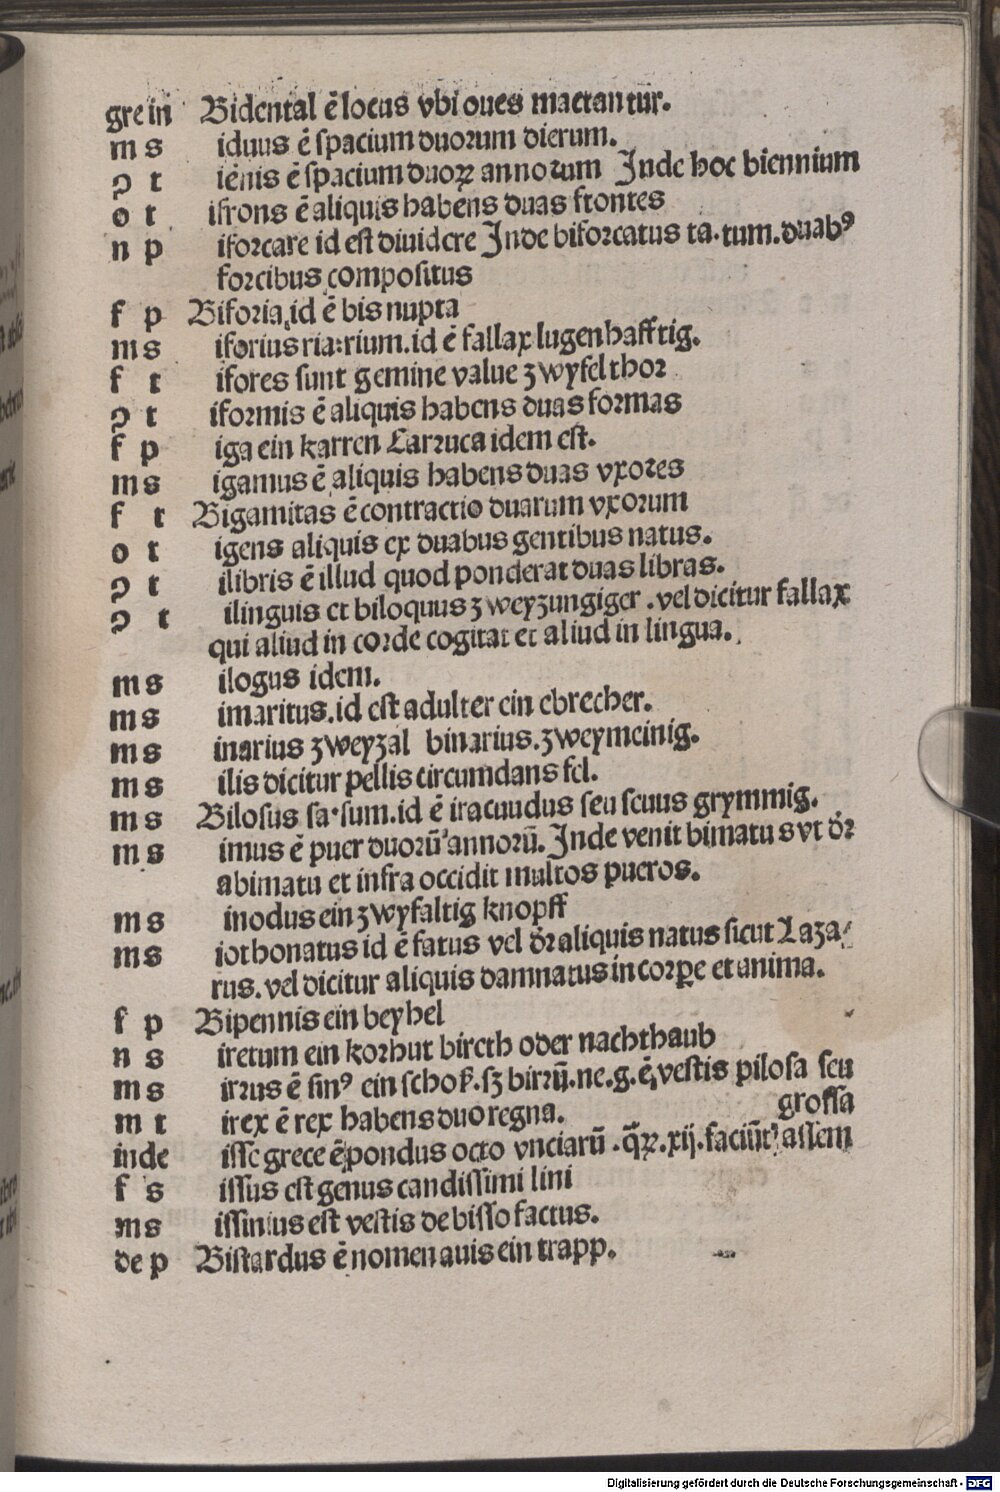 gre in Bidental ē locus vbi oues mactantur.
m s iduus ē spacium duorum dierum.
ꝯ t iēnis ē spacium duoꝝ annorum Inde hoc biennium
o t ifrons ē aliquis habens duas frontes
n p iforcare id est diuidere Inde biforcatus ta.tum.duabꝰ
forcibus compositus
f p Biforia id ē bis nupta
m s iforius ria:rium.id ē fallax lugenhafftig.
f t ifores sunt gemine value zwyfelthor
ꝯ t iformis ē aliquis habens duas formas
f p iga ein karren Carruca idem est.
m s igamus ē aliquis habens duas vxores
f t Bigamitas ē contractio duarum vxorum
o t igens aliquis ex duabus gentibus natus.
ꝯ t ilibris ē illud quod ponderat duas libras.
ꝯ t ilinguis et biloquus zweyzungiger .vel dicitur fallax
qui aliud in corde cogitat et aliud in lingua.
m s ilogus idem.
m s imaritus.id est adulter ein ebrecher.
m s inarius zweyzal binarius.zweymeinig.
m s ilis dicitur pellis circumdans fel.
m s Bilosus sa.sum.id ē iracundus seu seuus grymmig.
m s imus ē puer duorū annorū. Inde venit bimatus vt dr̄
abimatu et infra occidit multos pueros.
m s inodus ein zwyfaltig knopff
m s iothonatus id ē fatus vel dr̄ aliquis natus sicut Laza⸗
rus.vel dicitur aliquis damnatus in corꝑe et anima.
f p Bipennis ein beyhel
n s iretum ein korhut bireth oder nachthaub
m s irrus ē sinꝰ ein schok̄.sꝫ birrū.ne.g.ē vestis pilosa seu
grossa
m t irex ē rex habens duo regna.
inde isse grece ē pondus octo vnciarū .q̄ꝝ.xij.faciūt assem
f s issus est genus candissimi lini
m s issinius est vestis de bisso factus.
de p Bistardus ē nomen auis ein trapp.
Digitalisierung gefördert durch die Deutsche Forschungsgemeinschaft - DFG